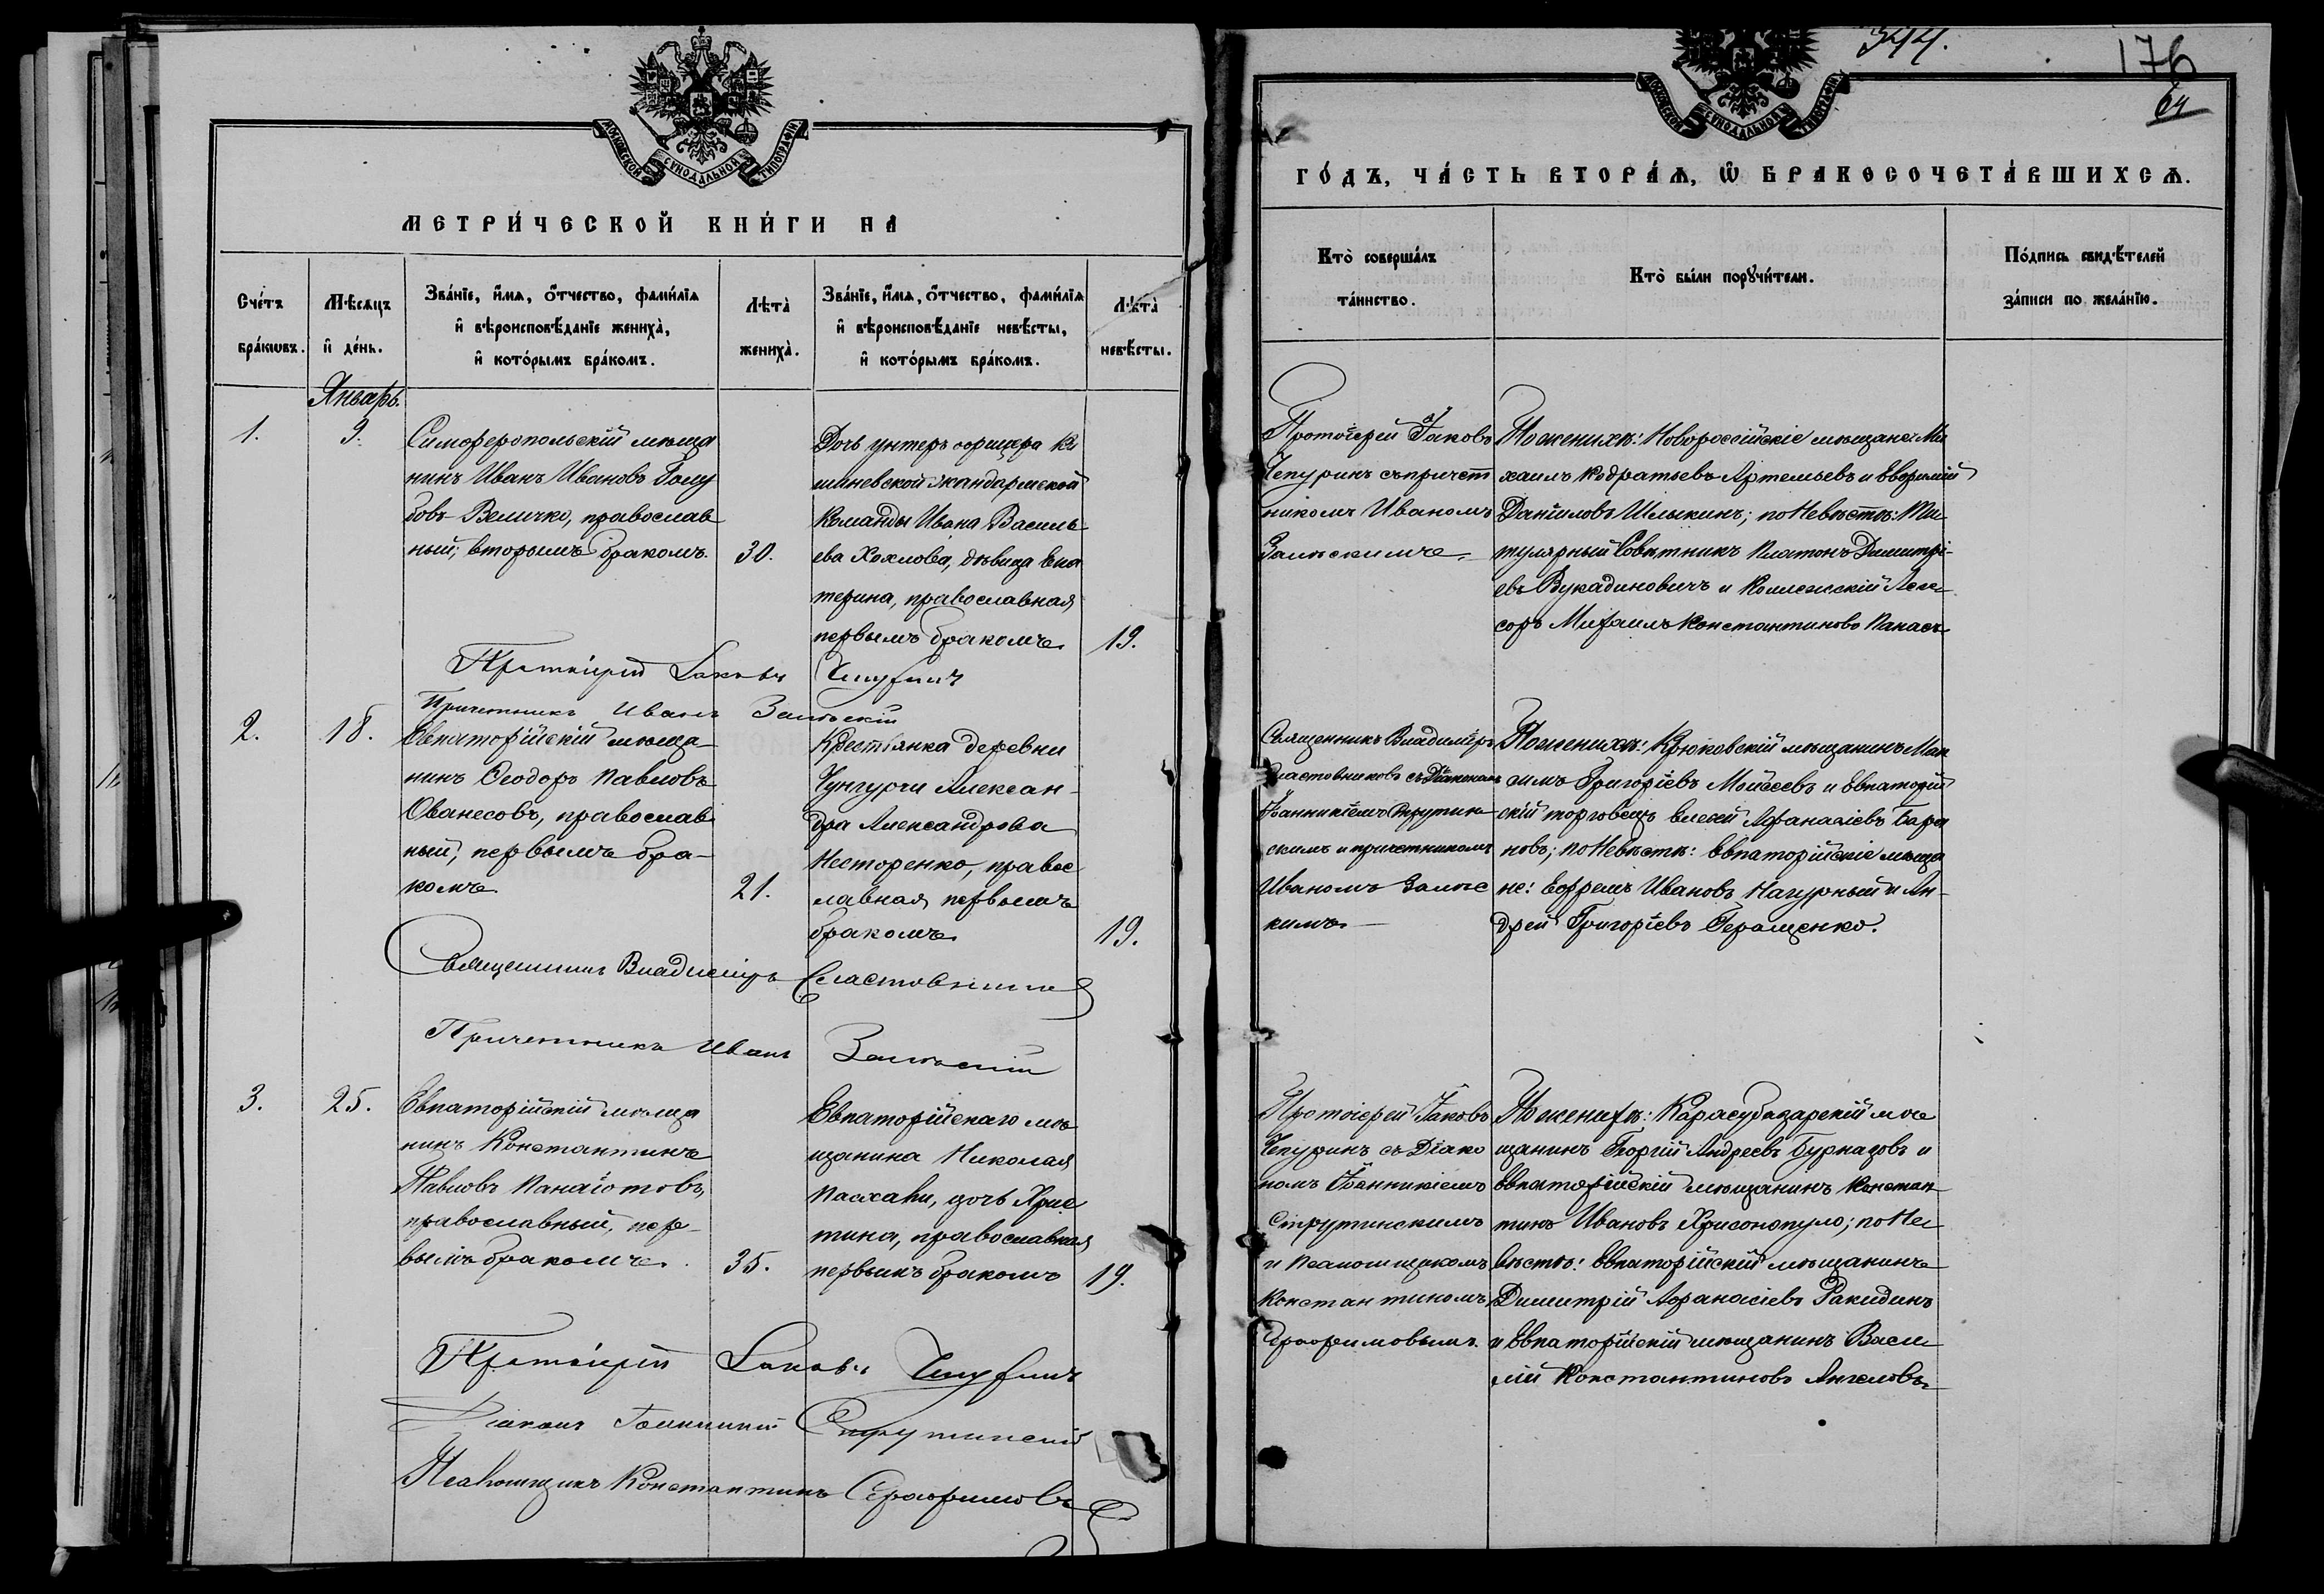 МОСКОВСКОЙ СѴНОДАЛЬНОЙ ТИПОГРАФІИ
МЕТРИ́ЧЕСКОЙ КНИ́ГИ НА
Сче́тъ бра́кωвъ.
Мѣ́сяцъ и҆ де́нь.
Зва́нїе, и҆́мѧ, ѻ҆́тчество, фамиі́лїѧ
и҆ вѣроисповѣ́данїе женихà,
и҆ кото́рымъ бра́комъ.
Лѣтà
женихà.
Зва́нїе, и҆́мѧ, ѻ҆́тчество, фами́лїѧ
и҆ вѣроисповѣ́данїе невѣ́сты,
и҆ кото́рымъ бра́комъ.
Лѣтà
невѣ́сты.
Январь.
1.
9.
Симферопольскій мѣща
нинъ Иванъ Ивановъ Голу
бовъ Величко, православ
ный, вторымъ бракомъ.
30.
Дочь унтеръ офицера Ки
шиневской жандармской
Команды Ивана Василь
ева Хохлова, дѣвица Ека
терина, православная
первымъ бракомъ.
19.
Протоіерей Іаковъ Чепуринъ
Причетникъ Иванъ Залѣскій
2.
18.
Евпаторійскій мѣща
нинъ Ѳеодоръ Павловъ
Ованесовъ, православ
ный, первымъ бра-
комъ.
21.
Крестьянка деревни
Чунгурчи Алексан-
дра Александрова
Несторенко, правос
лавная первымъ
бракомъ.
19.
Священникъ Владиміръ Сластовникъ
Причетникъ Иванъ Залѣскій
3.
25.
Евпаторійскій мѣща
нинъ Константинъ
Павловъ Панаіотовъ,
православный, пер-
вымъ бракомъ.
35.
Евпаторійскаго мѣ
щанина Николая
Пасхали, дочь Хрис
тина, православная
первымъ бракомъ
19.
Протоіерей Іаковъ Чепуринъ
Діаконъ Іоанникій Струтинскій
Псаломщикъ Константинъ Серафимовъ
344.
176
64
МОСКОВСКОЙ СѴНОДАЛЬНОЙ ТИПОГРАФІИ
ГО́ДЪ, ЧА́СТЬ ВТОРА́Ѧ, Ѡ҆ БРАКОСОЧЕТА́ВШИХСѦ.
Кто̀ соверша́лъ
та́инство.
Кто̀ бы́ли порꙋчи́тели.
По́дпись свидѣ́телей
за́писи по жела́нїю.
Протоіерей Іаковъ
Чепуринъ съ причет
никомъ Иваномъ
Залѣскимъ.
По женихѣ: Новоросійскіе мѣщане: Ми
хаилъ Кодратьевъ Артемьевъ и Евфимій
Даніиловъ Шлыкинъ; по Невѣстѣ: Ти
тулярный Совѣтникъ Платонъ Димитрі-
евъ Вукадиновичъ и Коллежскій Асес
соръ Михаилъ Константиновъ Панасъ
Священникъ Владиміръ
Сластовниковъ съ Діакономъ
Іоанникіемъ Струтин
скимъ и причетникомъ
Иваномъ Залѣс
кимъ.
По женихѣ: Крюковскій мѣщанинъ Мак
симъ Григоріевъ Мойсеевъ и Евпаторій
скій торговецъ Алексій Афанасіевъ Бара
новъ; по Невѣстѣ: Евпаторійскіе мѣща
не: Ефремъ Ивановъ Нагурный и Ан-
дрей Григоріевъ Геращенко.
Протоіерей Іаковъ
Чепуринъ съ Діако
номъ Іоанникіемъ
Струтинскимъ
и Псаломщикомъ
Константиномъ
Серафимовымъ.
По женихѣ: Карасубазарскій мѣ
щанинъ Георгій Андреевъ Бурназовъ и
Евпаторійскій мѣщанинъ Констан
тинъ Ивановъ Хрисонопуло; по Не
вѣстѣ: Евпаторійскій мѣщанинъ
Димитрій Афанасіевъ Ракидинъ
и Евпаторійскій мѣщанинъ Васи
лій Константиновъ Ангеловъ